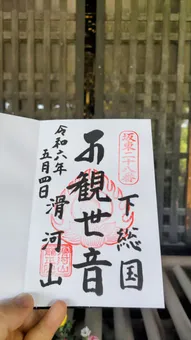 坂東二十八番
下総国
観世音
滑河山
令和六年
五月四日